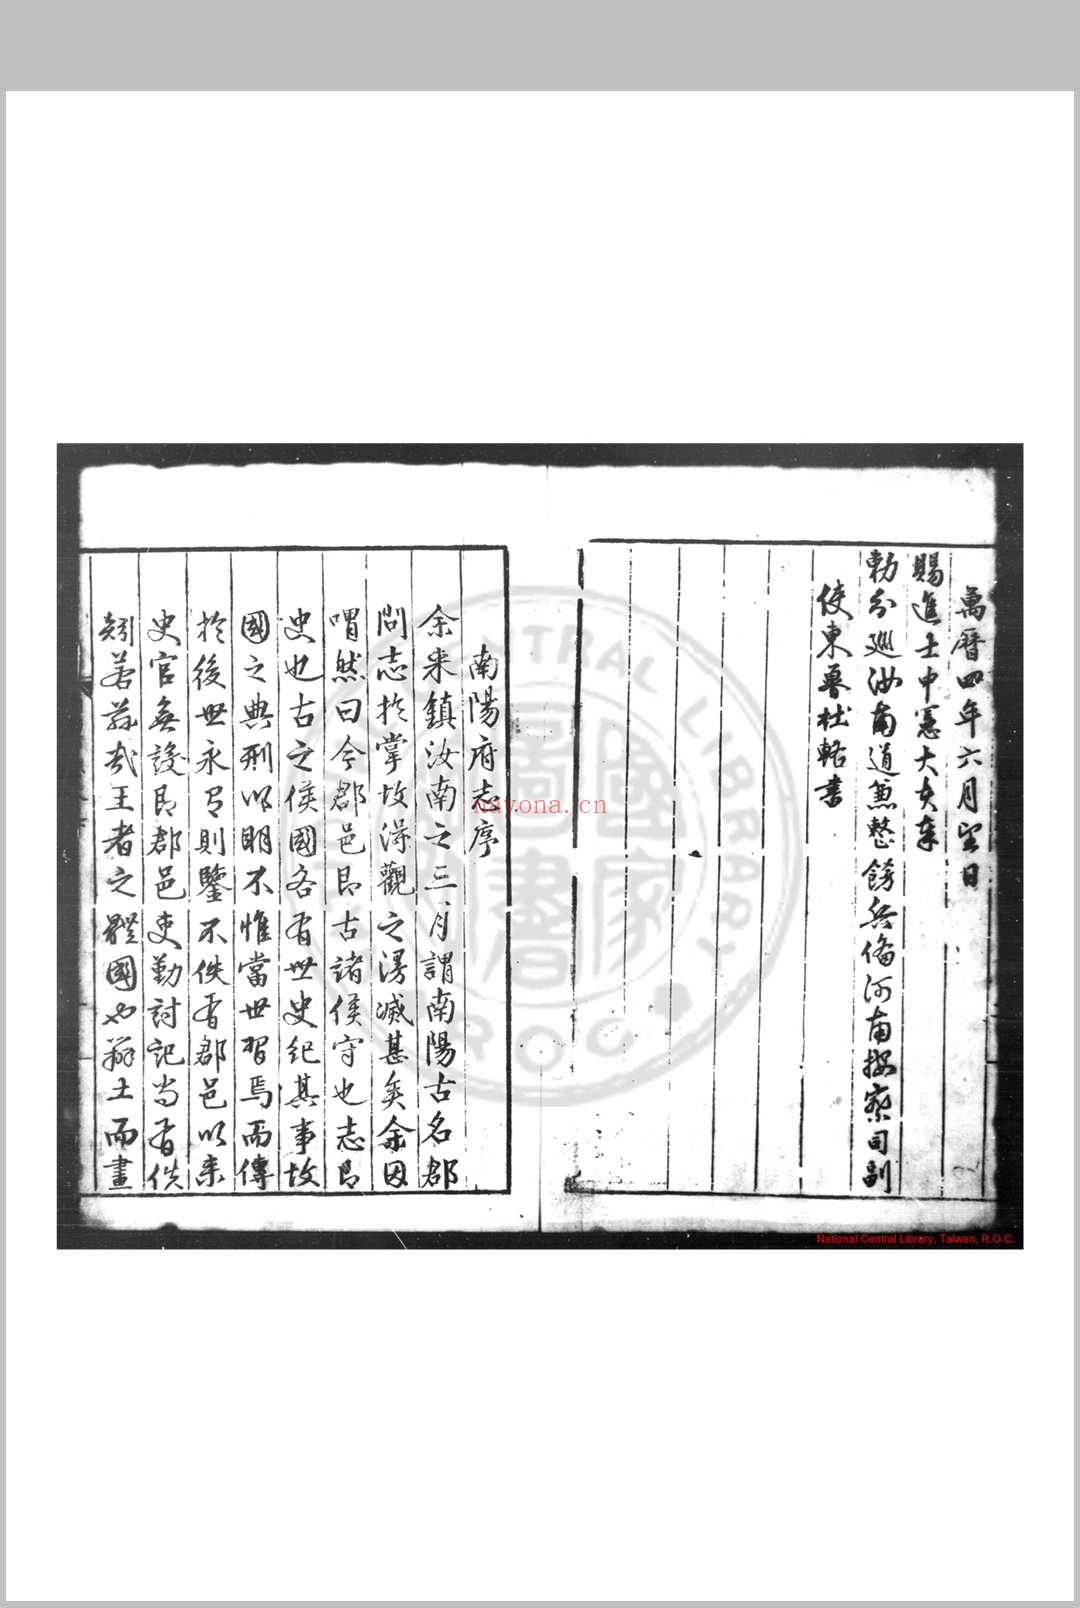 萬曆四年六月望日
賜進士中憲大夫奉
勅分巡汝南道兼整飭兵俻河南按察司副
使東魯杜輅書
南陽府志序
余来鎮汝南之三月謂南陽古名郡
問志扵掌故得觀之漫滅甚矣余因
喟然曰今郡邑即古諸侯守也志即
史也古之侯國各有世史紀其事故
國之典刑以明不惟當世習焉而傳
扵後世永有則鑒不佚者郡邑以来
史官無設即郡邑吏勤討記尚有佚
王者之體國也辯土而畫
NTRAL LIBRARY
R.O.C
國家圖書
nayona.cn
National Central Library, Taiwan, R.O.C.